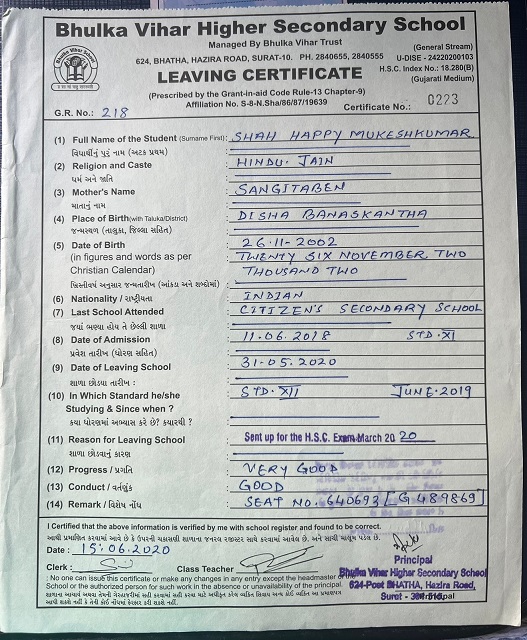 Bhulka Vihar Higher Secondary School
Managed By Bhulka Vihar Trust
(General Stream)
624, BHATHA, HAZIRA ROAD, SURAT-10. PH. 2840655, 2840555
U-DISE - 24220200103
LEAVING CERTIFICATE
H.S.C. Index No.: 18.280(B)
(Gujarati Medium)
(Prescribed by the Grant-in-aid Code Rule-13 Chapter-9)
Affiliation No. S-8-N.Sha/86/87/19639
G.R. No.: 218
Certificate No.: 0223
(1) Full Name of the Student (Surname First) : SHAH HAPPY MUKESHKUMAR
વિદ્યાર્થીનું પુરું નામ (અટક પ્રથમ)
(2) Religion and Caste : HINDU. JAIN
ધર્મ અને જાતિ
(3) Mother's Name : SANGITABEN
માતાનું નામ
(4) Place of Birth (with Taluka/District) : DISHA BANASKANTHA
જન્મસ્થળ (તાલુકા, જિલ્લા સહિત)
(5) Date of Birth : 26.11-2002
(in figures and words as per : TWENTY SIX NOVEMBER TWO
Christian Calendar) THOUSAND TWO
ખ્રિસ્તીવર્ષ અનુસાર જન્મતારીખ (આંકડા અને શબ્દોમાં)
(6) Nationality / રાષ્ટ્રીયતા : INDIAN
(7) Last School Attended : CITIZEN'S SECONDARY SCHOOL
જ્યાં ભણ્યા હોય તે છેલ્લી શાળા
(8) Date of Admission : 11.06.2018 STD-XI
પ્રવેશ તારીખ (ધોરણ સહિત)
(9) Date of Leaving School : 31-05.2020
શાળા છોડ્યા તારીખ :
(10) In Which Standard he/she : STD-XII JUNE-2019
Studying & Since when ?
કયા ધોરણમાં અભ્યાસ કરે છે? ક્યારથી ?
(11) Reason for Leaving School : Sent up for the H.S.C. Exam March 20 20
શાળા છોડવાનું કારણ
(12) Progress / પ્રગતિ : VERY GOOD
(13) Conduct / વર્તણુંક : GOOD
(14) Remark / વિશેષ નોંધ : SEAT NO. 640693 [G 489869]
I Certified that the above information is verified by me with school register and found to be correct.
Date : 15.06.2020
Clerk :
Class Teacher
Principal
Bhulka Vihar Higher Secondary School
624-Post BHATHA, Hazira Road,
Surat -
Principal
: No one can issue this certificate or make any changes in any entry except the headmaster of
School or the authorized person for such work in the absence or unavailability of the principal.